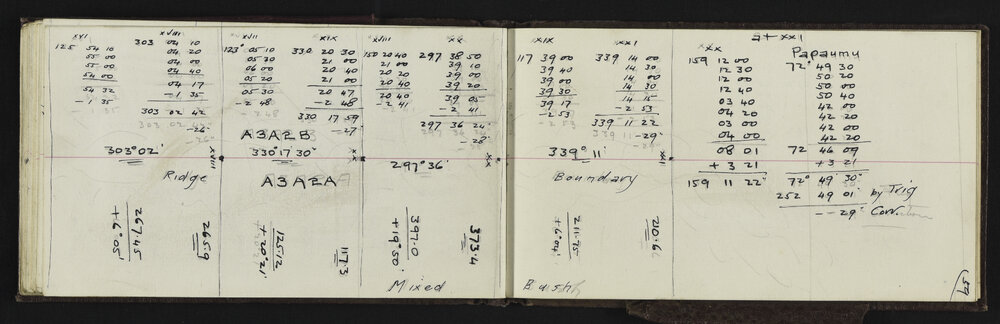 xvi
125 54 10
55 00
55 00
54 00
54 32
- 1 35
xviii
303 04 10
04 20
04 00
04 40
04 17
- 1 35
303 02 42
-26"
303° 02'
xvii
123° 05 10
05 30
06 00
05 20
05 30
- 2 48
A3A2B
xix
330 20 30
21 00
20 40
21 00
20 47
- 2 48
330 17 59
-27"
330° 17' 30"
A3A2A
xviii
150 20 40
21 00
20 20
20 40
20 40
- 2 41
xx
297 38 50
39 10
39 00
39 20
39 05
- 2 41
297 36 24"
-28"
297° 36'
xviii
xx
xx
Ridge
267.45
+6° 05'
265.9
125.12
+20° 21'
117.3
397.0
+19° 50'
373.4
Mixed
xix
117 39 00
39 40
39 00
39 30
39 17
-2 53
xxi
339 14 00
14 30
14 00
14 30
14 15
- 2 53
339 11 22
-29"
339° 11'
xxi
Boundary
211.75
+6° 04'
210.6
Bush
at xxi
xx
159 12 00
12 30
12 00
12 40
03 40
04 20
03 00
04 00
08 01
+ 3 21
159 11 22"
Papaumu
72° 49 30
50 20
50 00
50 40
42 00
42 20
42 00
42 20
72 46 09
+3 21
72° 49 30"
252 49 01" by Trig
-- 29" Corr.
59